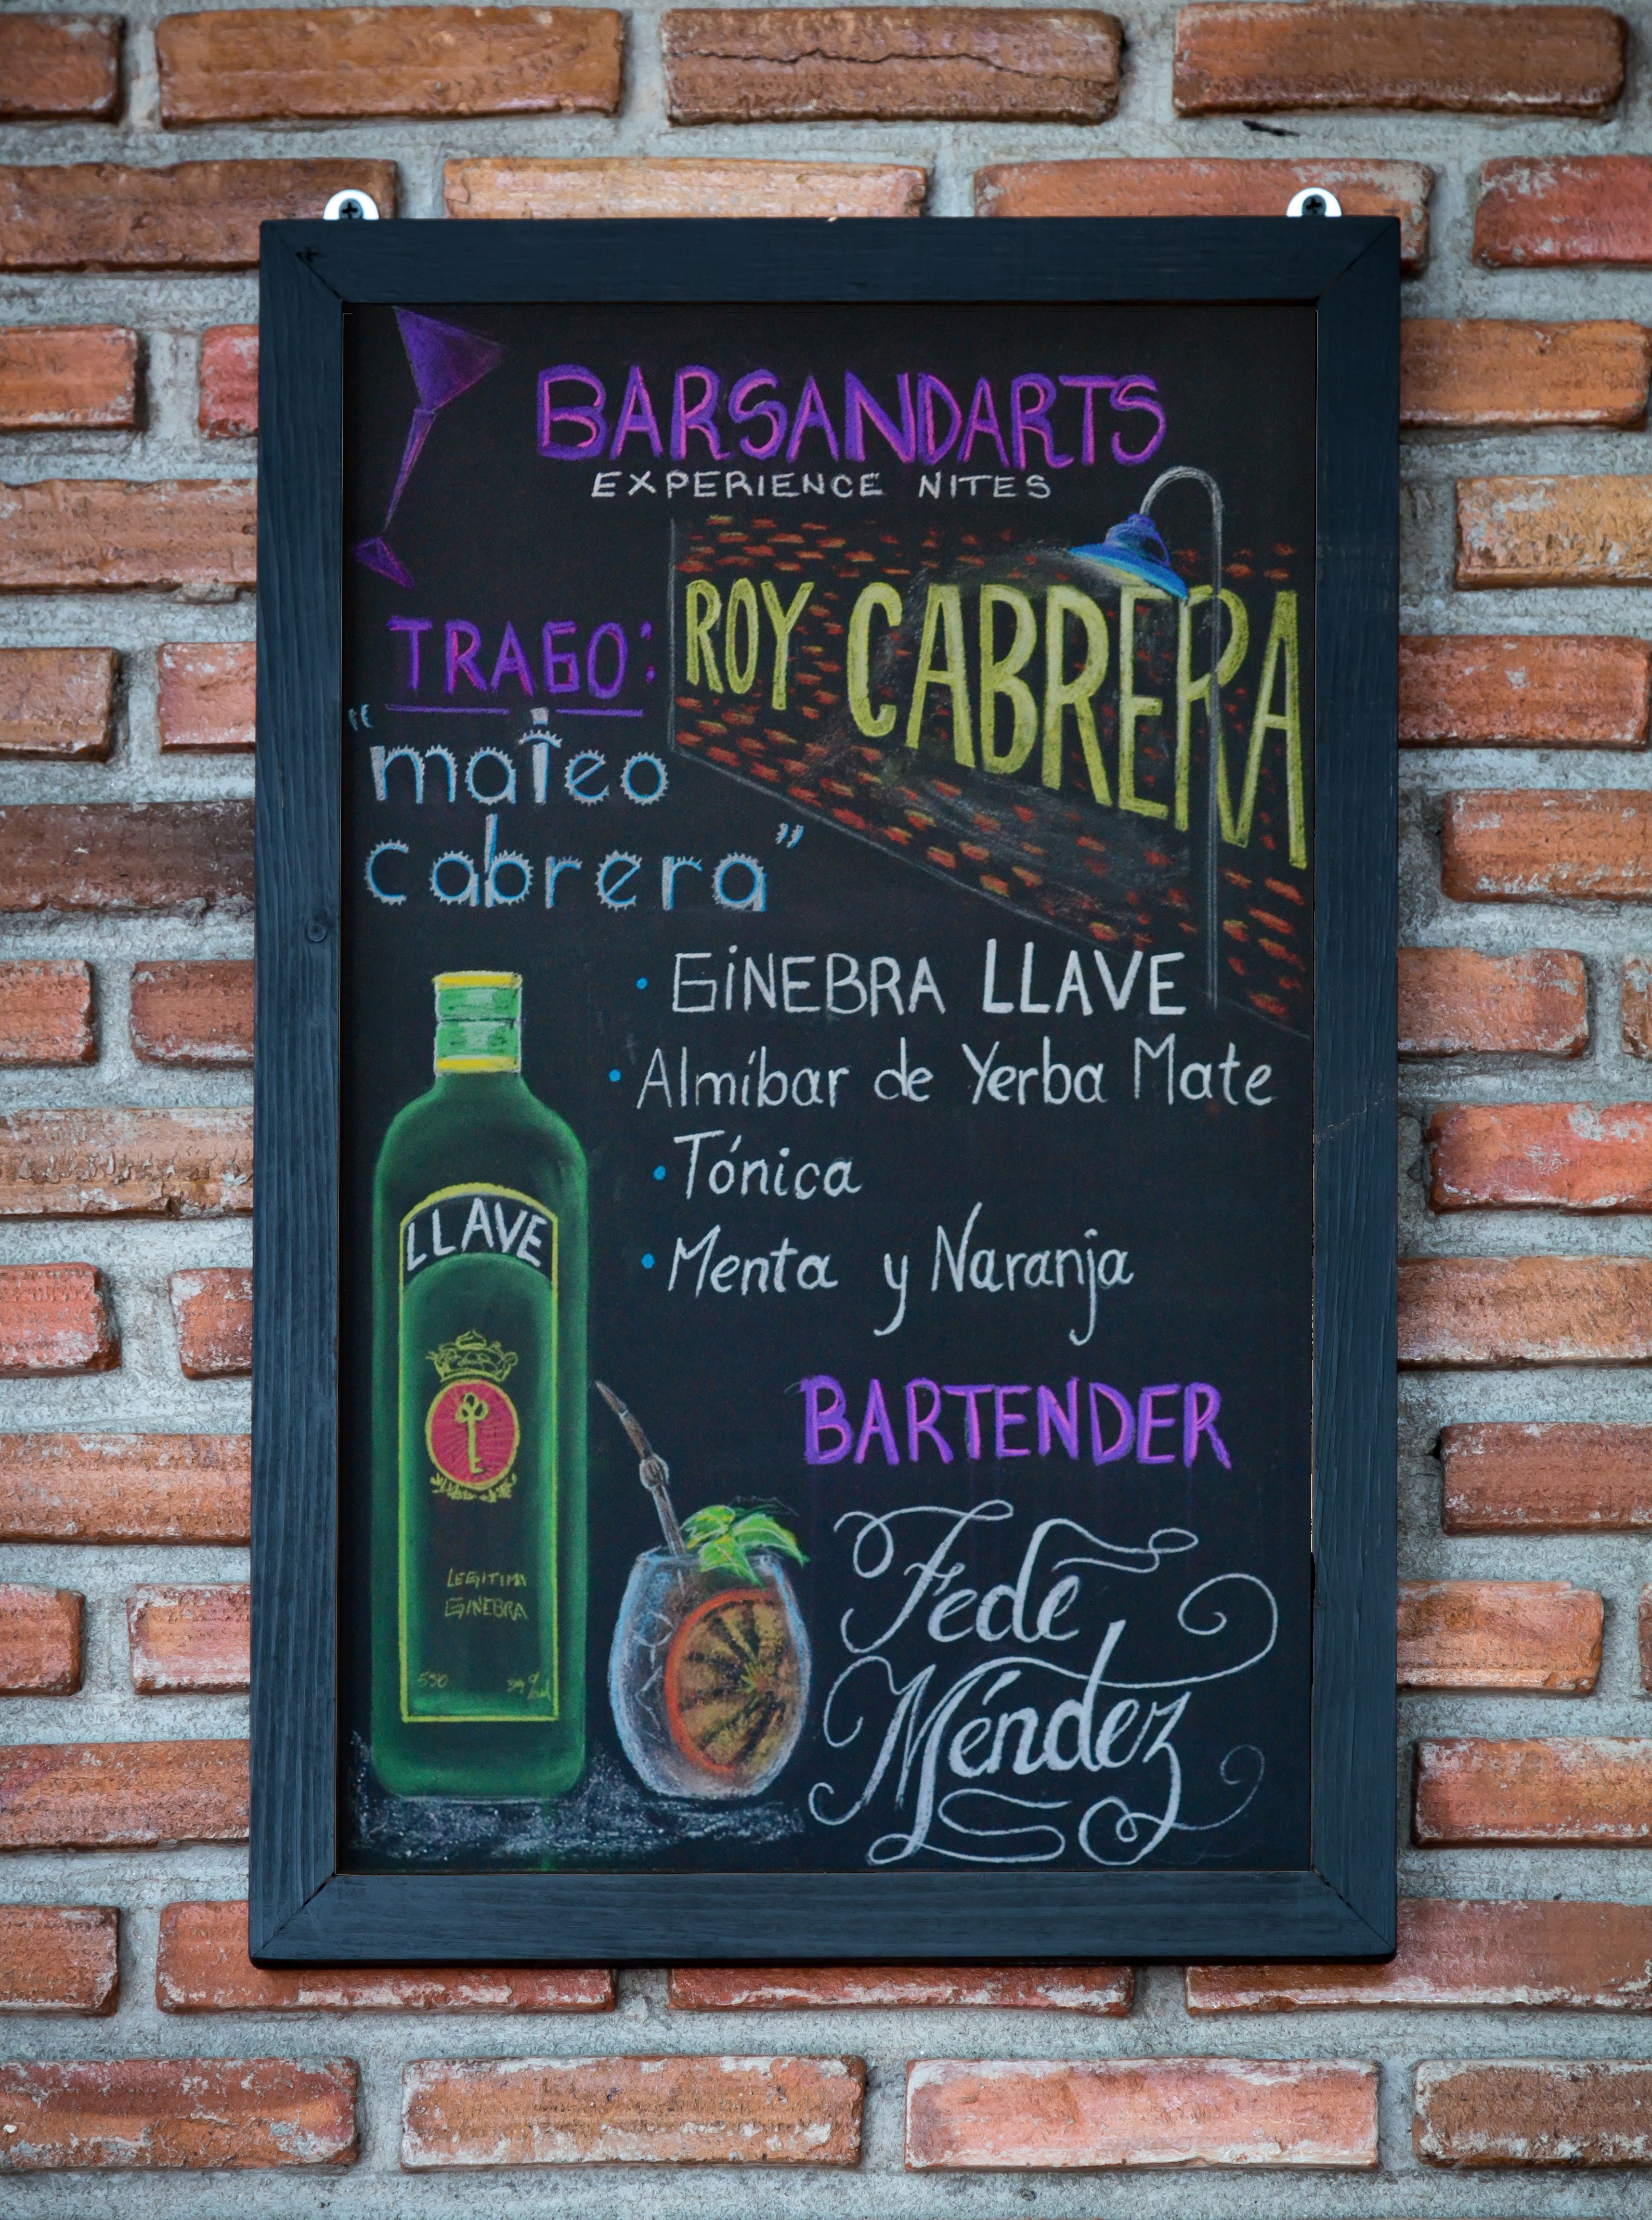 BARSANDARTS
EXPERIENCE NITES
ROY CABRERA
TRAGO:
"mateo
cabrera"
• GINEBRA LLAVE
• Almíbar de Yerba Mate
• Tónica
• Menta y Naranja
LLAVE
LEGITIMA
GINEBRA
BARTENDER
Fede
Méndez